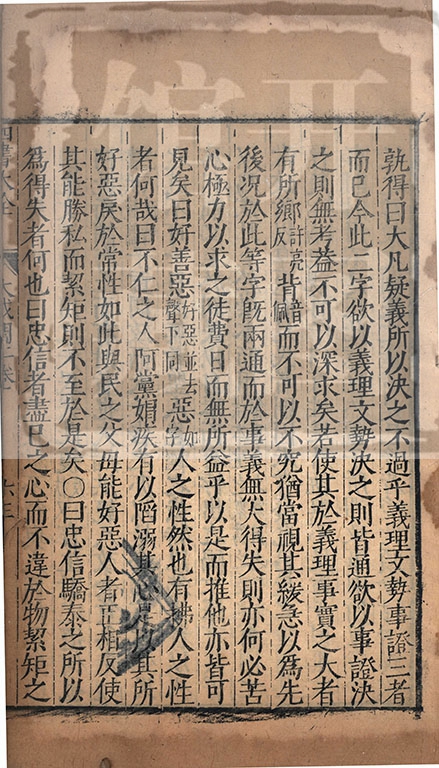 孰得曰大凡疑義所以決之不過乎義理文勢事證三者
而已今此二字欲以義理文勢決之則皆通欲以事證決
之則無考蓋不可以深求矣若使其於義理事實之大者
有所鄉許亮反背音佩而不可以不究猶當視其緩急以爲先
後況於此等字既兩通而於事義無大得失則亦何必苦
心極方以求之徒費日而無所益乎以是而推他亦皆可
見矣曰好善惡好惡並去聲下同惡如字人之性然也有拂人之性
者何哉曰不仁之人阿黨媢疾有以陷溺其心是以其所
好惡戾於常性如此與民之父母能好惡人者正相反使
其能勝私而絜矩則不至於是矣○曰忠信驕泰之所以
爲得失者何也曰忠信者盡己之心而不違於物絜矩之
四書大全 大學或問 卷 六三